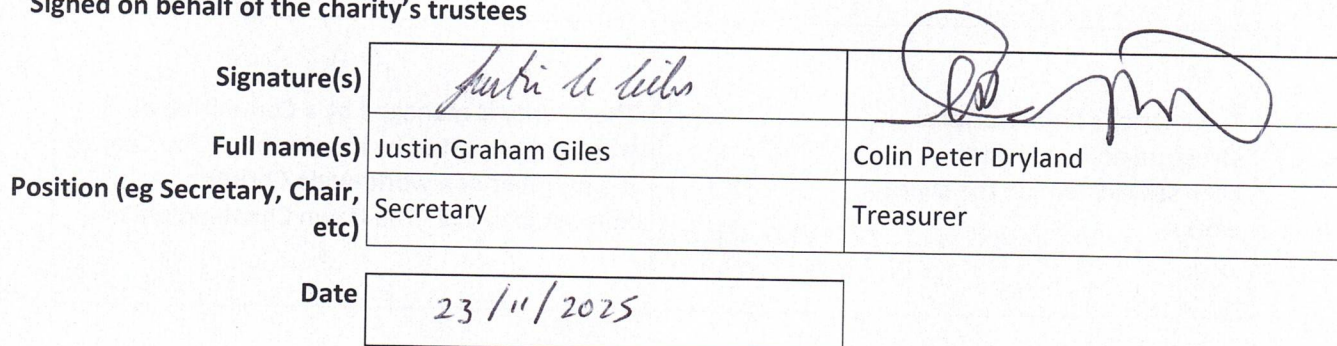 Signed on behalf of the charity's trustees
Signature(s) Justin G Giles
Full name(s) Justin Graham Giles Colin Peter Dryland
Position (eg Secretary, Chair, etc) Secretary Treasurer
Date 23/11/2025